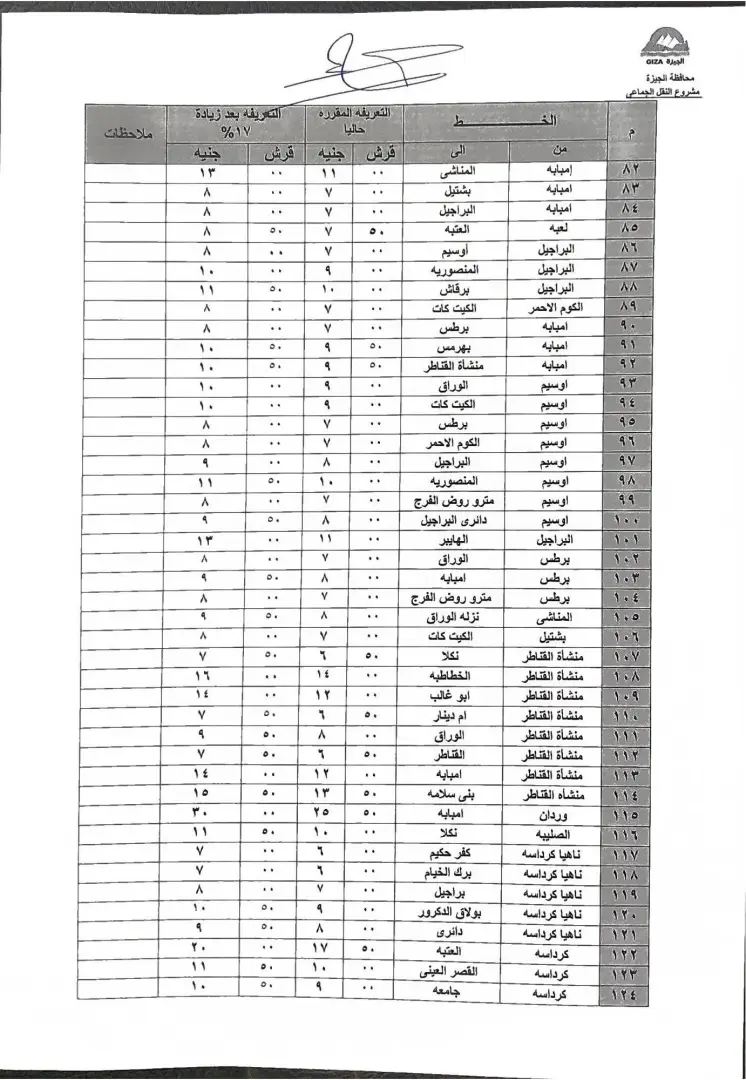 الجيزة GIZA
محافظة الجيزة
مشروع النقل الجماعى
م الخــــط التعريفه المقرره حاليا التعريفه بعد زيادة ١٧% ملاحظات
من الى قرش جنيه قرش جنيه
٨٢ إمبابه المناشى ٠٠ ١١ ٠٠ ١٣
٨٣ امبابه بشتيل ٠٠ ٧ ٠٠ ٨
٨٤ امبابه البراجيل ٠٠ ٧ ٠٠ ٨
٨٥ لعبه العتبه ٥٠ ٧ ٥٠ ٨
٨٦ البراجيل أوسيم ٠٠ ٧ ٠٠ ٨
٨٧ البراجيل المنصوريه ٠٠ ٩ ٠٠ ١٠
٨٨ البراجيل برقاش ٠٠ ١٠ ٥٠ ١١
٨٩ الكوم الاحمر الكيت كات ٠٠ ٧ ٠٠ ٨
٩٠ امبابه برطس ٠٠ ٧ ٠٠ ٨
٩١ امبابه بهرمس ٥٠ ٩ ٥٠ ١٠
٩٢ امبابه منشأة القناطر ٥٠ ٩ ٥٠ ١٠
٩٣ اوسيم الوراق ٠٠ ٩ ٠٠ ١٠
٩٤ اوسيم الكيت كات ٠٠ ٩ ٠٠ ١٠
٩٥ اوسيم برطس ٠٠ ٧ ٠٠ ٨
٩٦ اوسيم الكوم الاحمر ٠٠ ٧ ٠٠ ٨
٩٧ اوسيم البراجيل ٠٠ ٨ ٠٠ ٩
٩٨ اوسيم المنصوريه ٠٠ ١٠ ٥٠ ١١
٩٩ اوسيم مترو روض الفرج ٠٠ ٧ ٠٠ ٨
١٠٠ اوسيم دائرى البراجيل ٠٠ ٨ ٥٠ ٩
١٠١ البراجيل الهايبر ٠٠ ١١ ٠٠ ١٣
١٠٢ برطس الوراق ٠٠ ٧ ٠٠ ٨
١٠٣ برطس امبابه ٠٠ ٨ ٥٠ ٩
١٠٤ برطس مترو روض الفرج ٠٠ ٧ ٠٠ ٨
١٠٥ المناشى نزله الوراق ٠٠ ٨ ٥٠ ٩
١٠٦ بشتيل الكيت كات ٠٠ ٧ ٠٠ ٨
١٠٧ منشأة القناطر نكلا ٥٠ ٦ ٥٠ ٧
١٠٨ منشأة القناطر الخطاطبه ٠٠ ١٤ ٠٠ ١٦
١٠٩ منشأة القناطر ابو غالب ٠٠ ١٢ ٠٠ ١٤
١١٠ منشأة القناطر ام دينار ٥٠ ٦ ٥٠ ٧
١١١ منشأة القناطر الوراق ٠٠ ٨ ٥٠ ٩
١١٢ منشأة القناطر القناطر ٥٠ ٦ ٥٠ ٧
١١٣ منشأة القناطر امبابه ٠٠ ١٢ ٠٠ ١٤
١١٤ منشاه القناطر بنى سلامه ٥٠ ١٣ ٥٠ ١٥
١١٥ وردان امبابه ٥٠ ٢٥ ٠٠ ٣٠
١١٦ الصليبه نكلا ٠٠ ١٠ ٥٠ ١١
١١٧ ناهيا كرداسه كفر حكيم ٠٠ ٦ ٠٠ ٧
١١٨ ناهيا كرداسه برك الخيام ٠٠ ٦ ٠٠ ٧
١١٩ ناهيا كرداسه براجيل ٠٠ ٧ ٠٠ ٨
١٢٠ ناهيا كرداسه بولاق الدكرور ٠٠ ٩ ٥٠ ١٠
١٢١ ناهيا كرداسه دائرى ٠٠ ٨ ٥٠ ٩
١٢٢ كرداسه العتبه ٥٠ ١٧ ٠٠ ٢٠
١٢٣ كرداسه القصر العينى ٠٠ ١٠ ٥٠ ١١
١٢٤ كرداسه جامعه ٠٠ ٩ ٥٠ ١٠